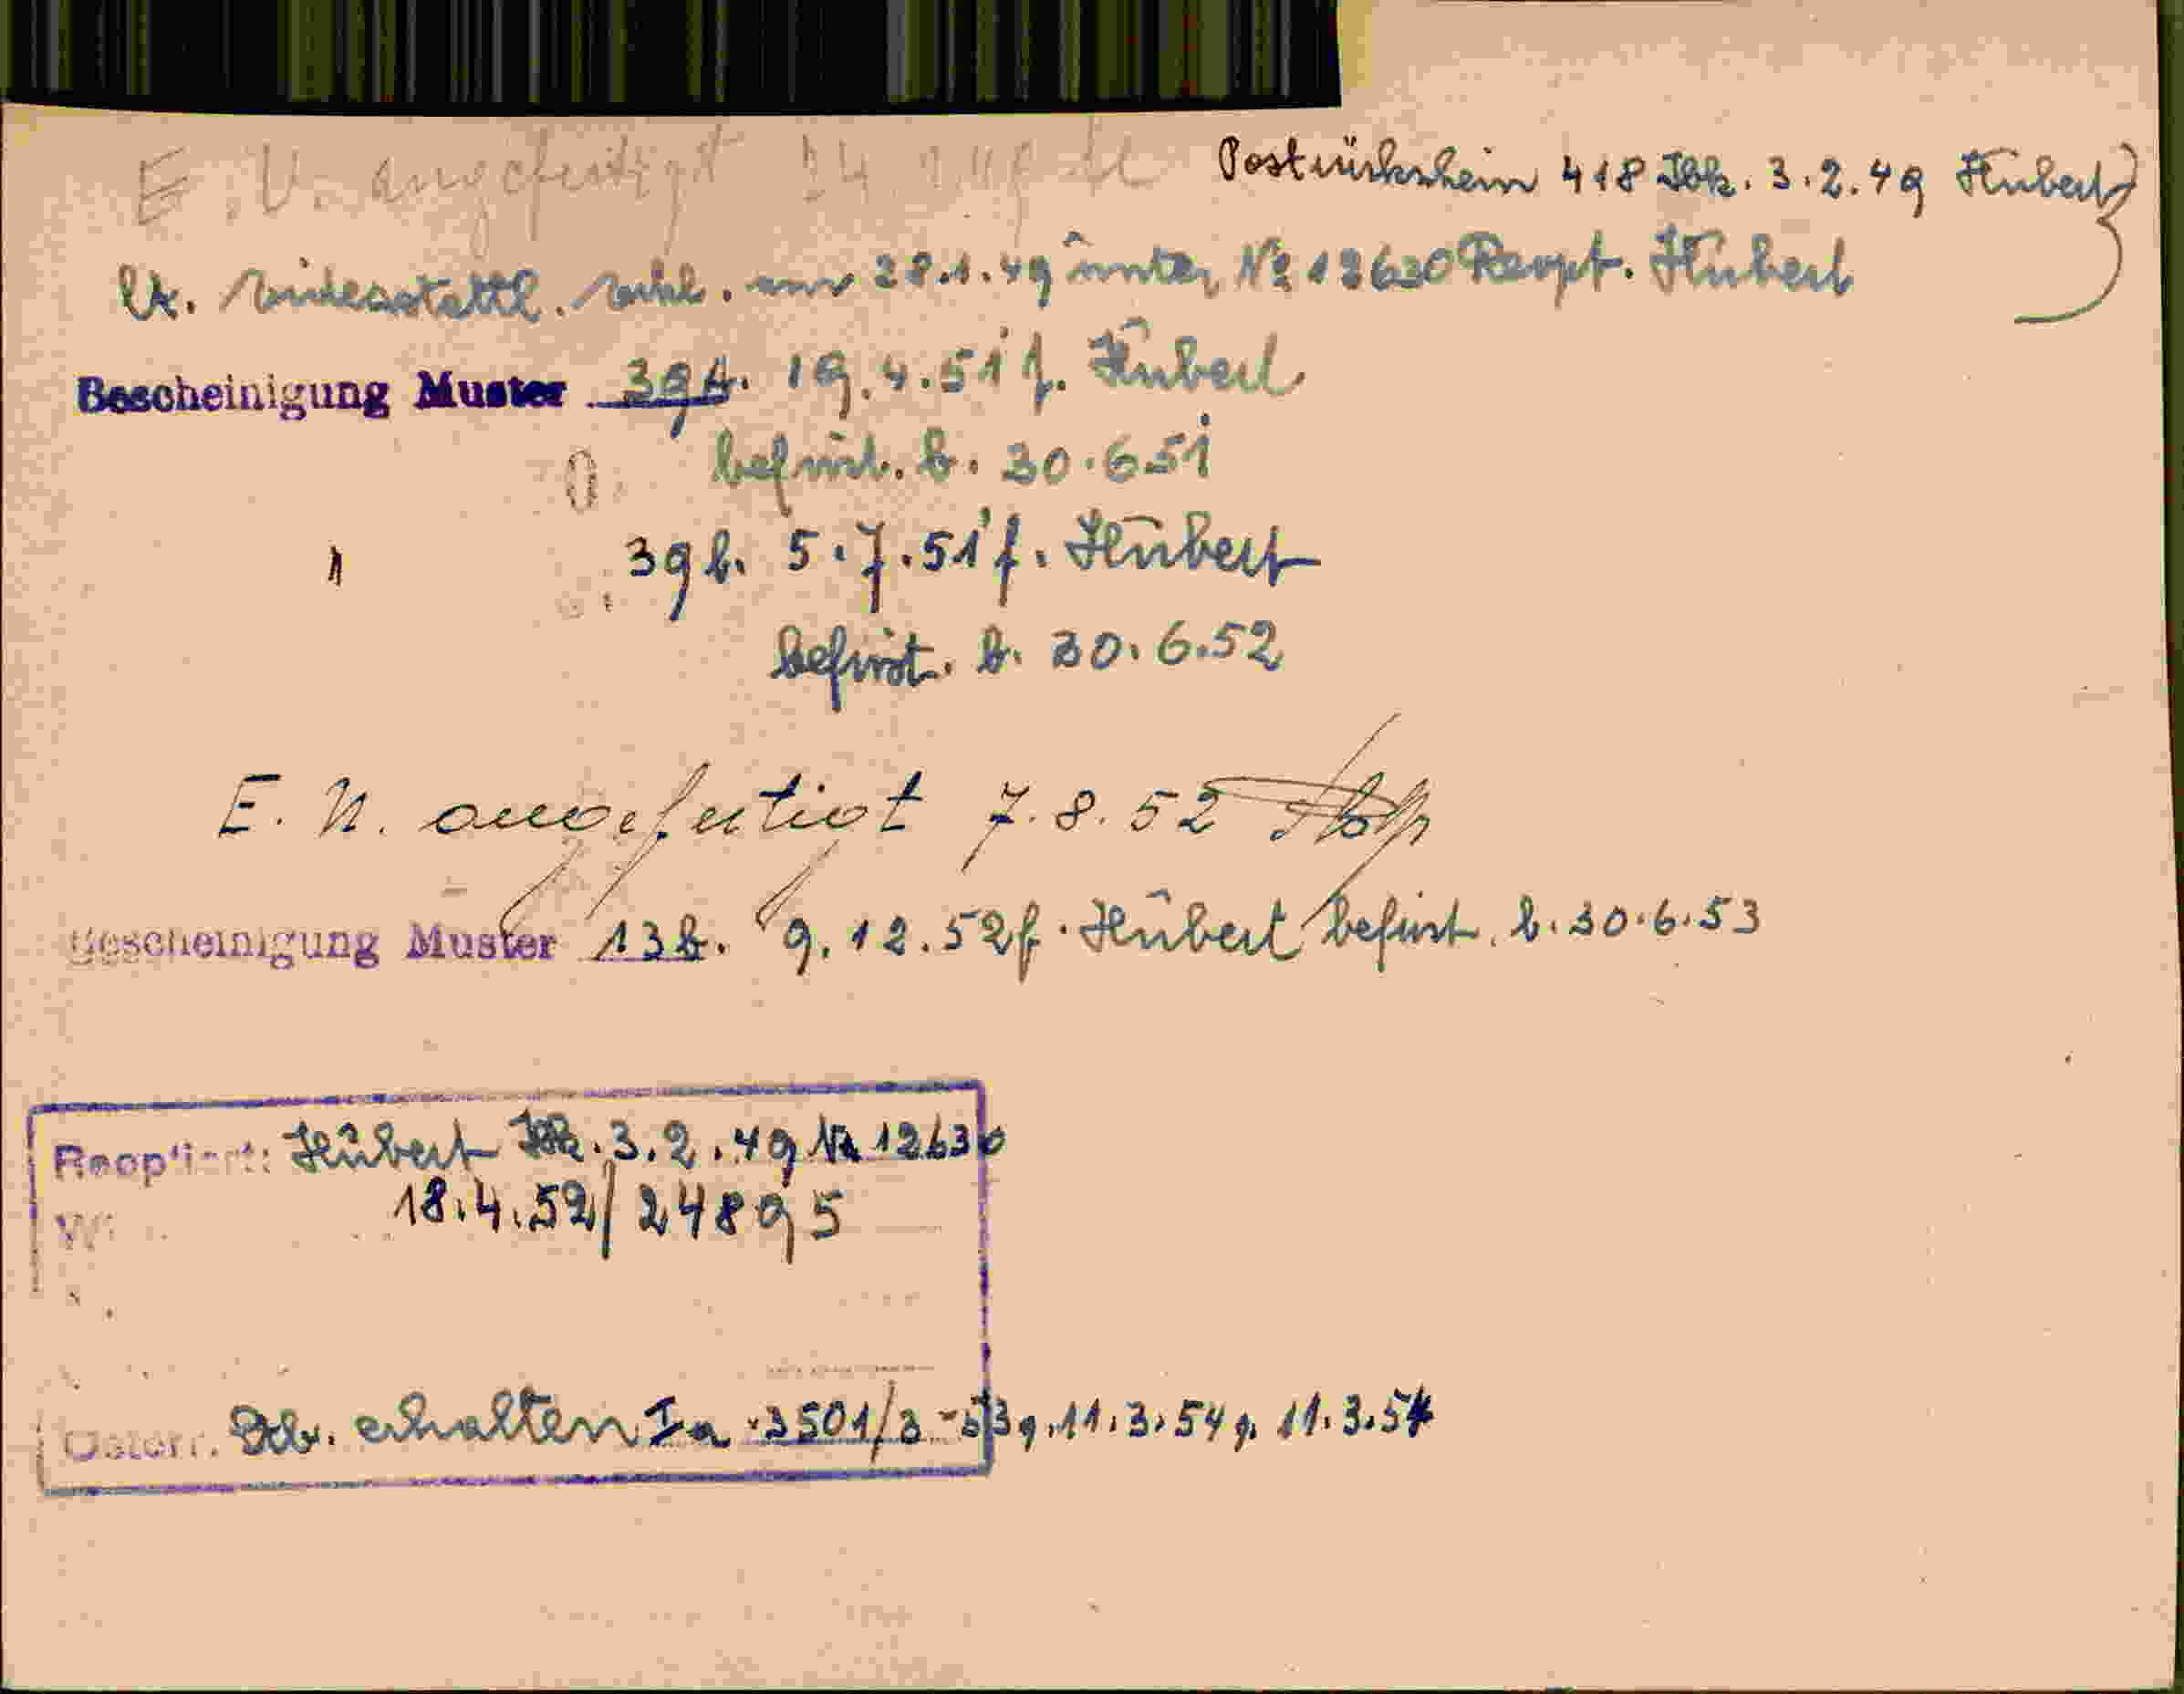 E. V. angefertigt 24.
Postrückschein 418 Jbk. 3.2.49 Hubert
lt. eidesstattl. erkl. am 28.1.49 unter № 12630 Reopt. Hubert
Bescheinigung Muster 39b. 19.4.51 f. Hubert
befrist. b. 30.6.51
" 39b. 5.7.51 f. Hubert
befrist. b. 30.6.52
E. N. angefertigt 7.8.52
Bescheinigung Muster 13b. 9.12.52 f. Hubert befrist. b. 30.6.53
Reoptiert: Hubert Jbk. 3.2.49 № 12630
18.4.52/24895
Österr. erhalten Ia 3501/3-53 g. 11.3.54 g. 11.3.54